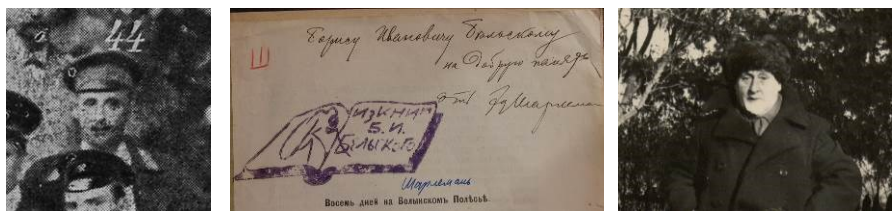 44
Борису Ивановичу Бѣлыскому
на добрую память
от ЭдШарлеманя
Ш
ИЗ КНИГ
Б. И.
БѢЛЫКОГО
Шарлемань
Восемь дней на Волынскомъ Полѣсьѣ.